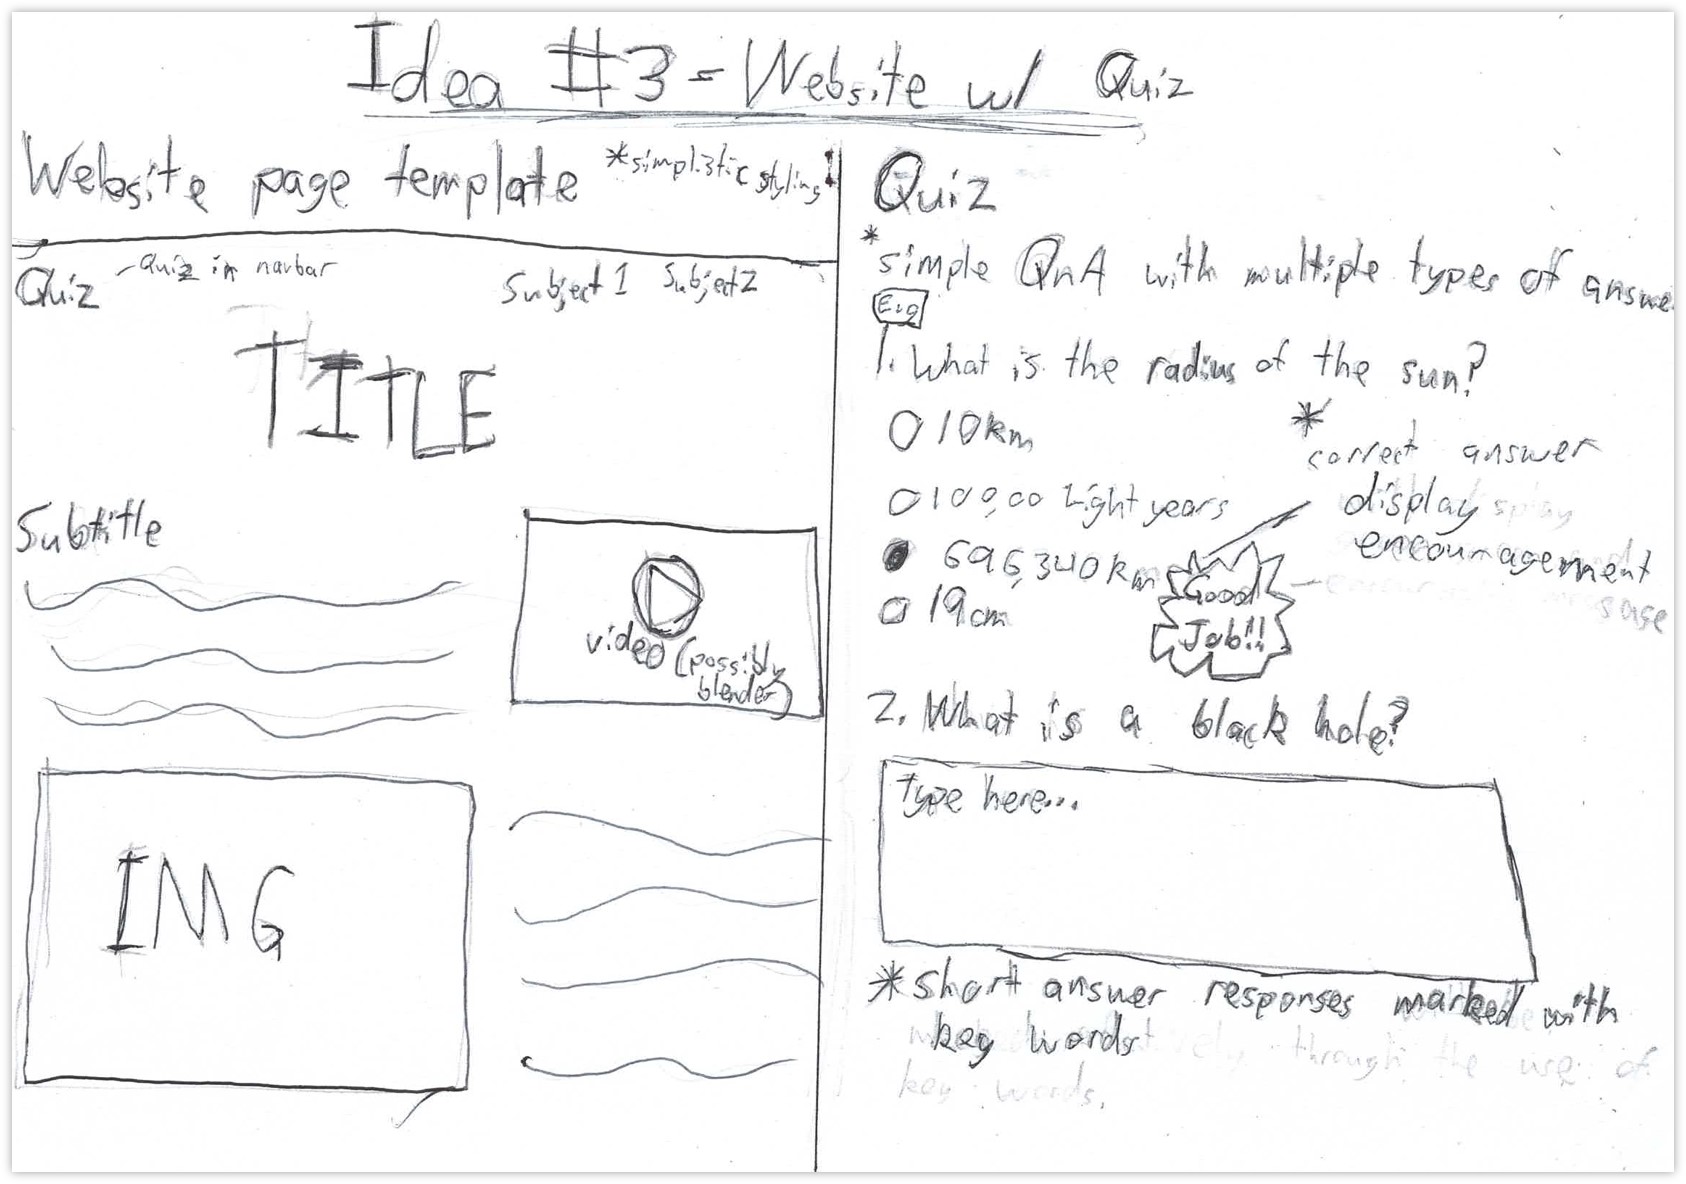 Idea #3 - Website w/ Quiz
Website page template
*simplistic styling!
Quiz
- Quiz in navbar
Subject 1 Subject 2
TITLE
Subtitle
video (possibly
blender)
IMG
Quiz
*
simple QnA with multiple types of answe
E.g
1. What is the radius of the sun?
10km
100,00 Light years
696,340km
19cm
*
correct answer
display
encouragement
Good
Job!!
message
2. What is a black hole?
Type here...
*short answer responses marked with
key words
through the use of
key words.